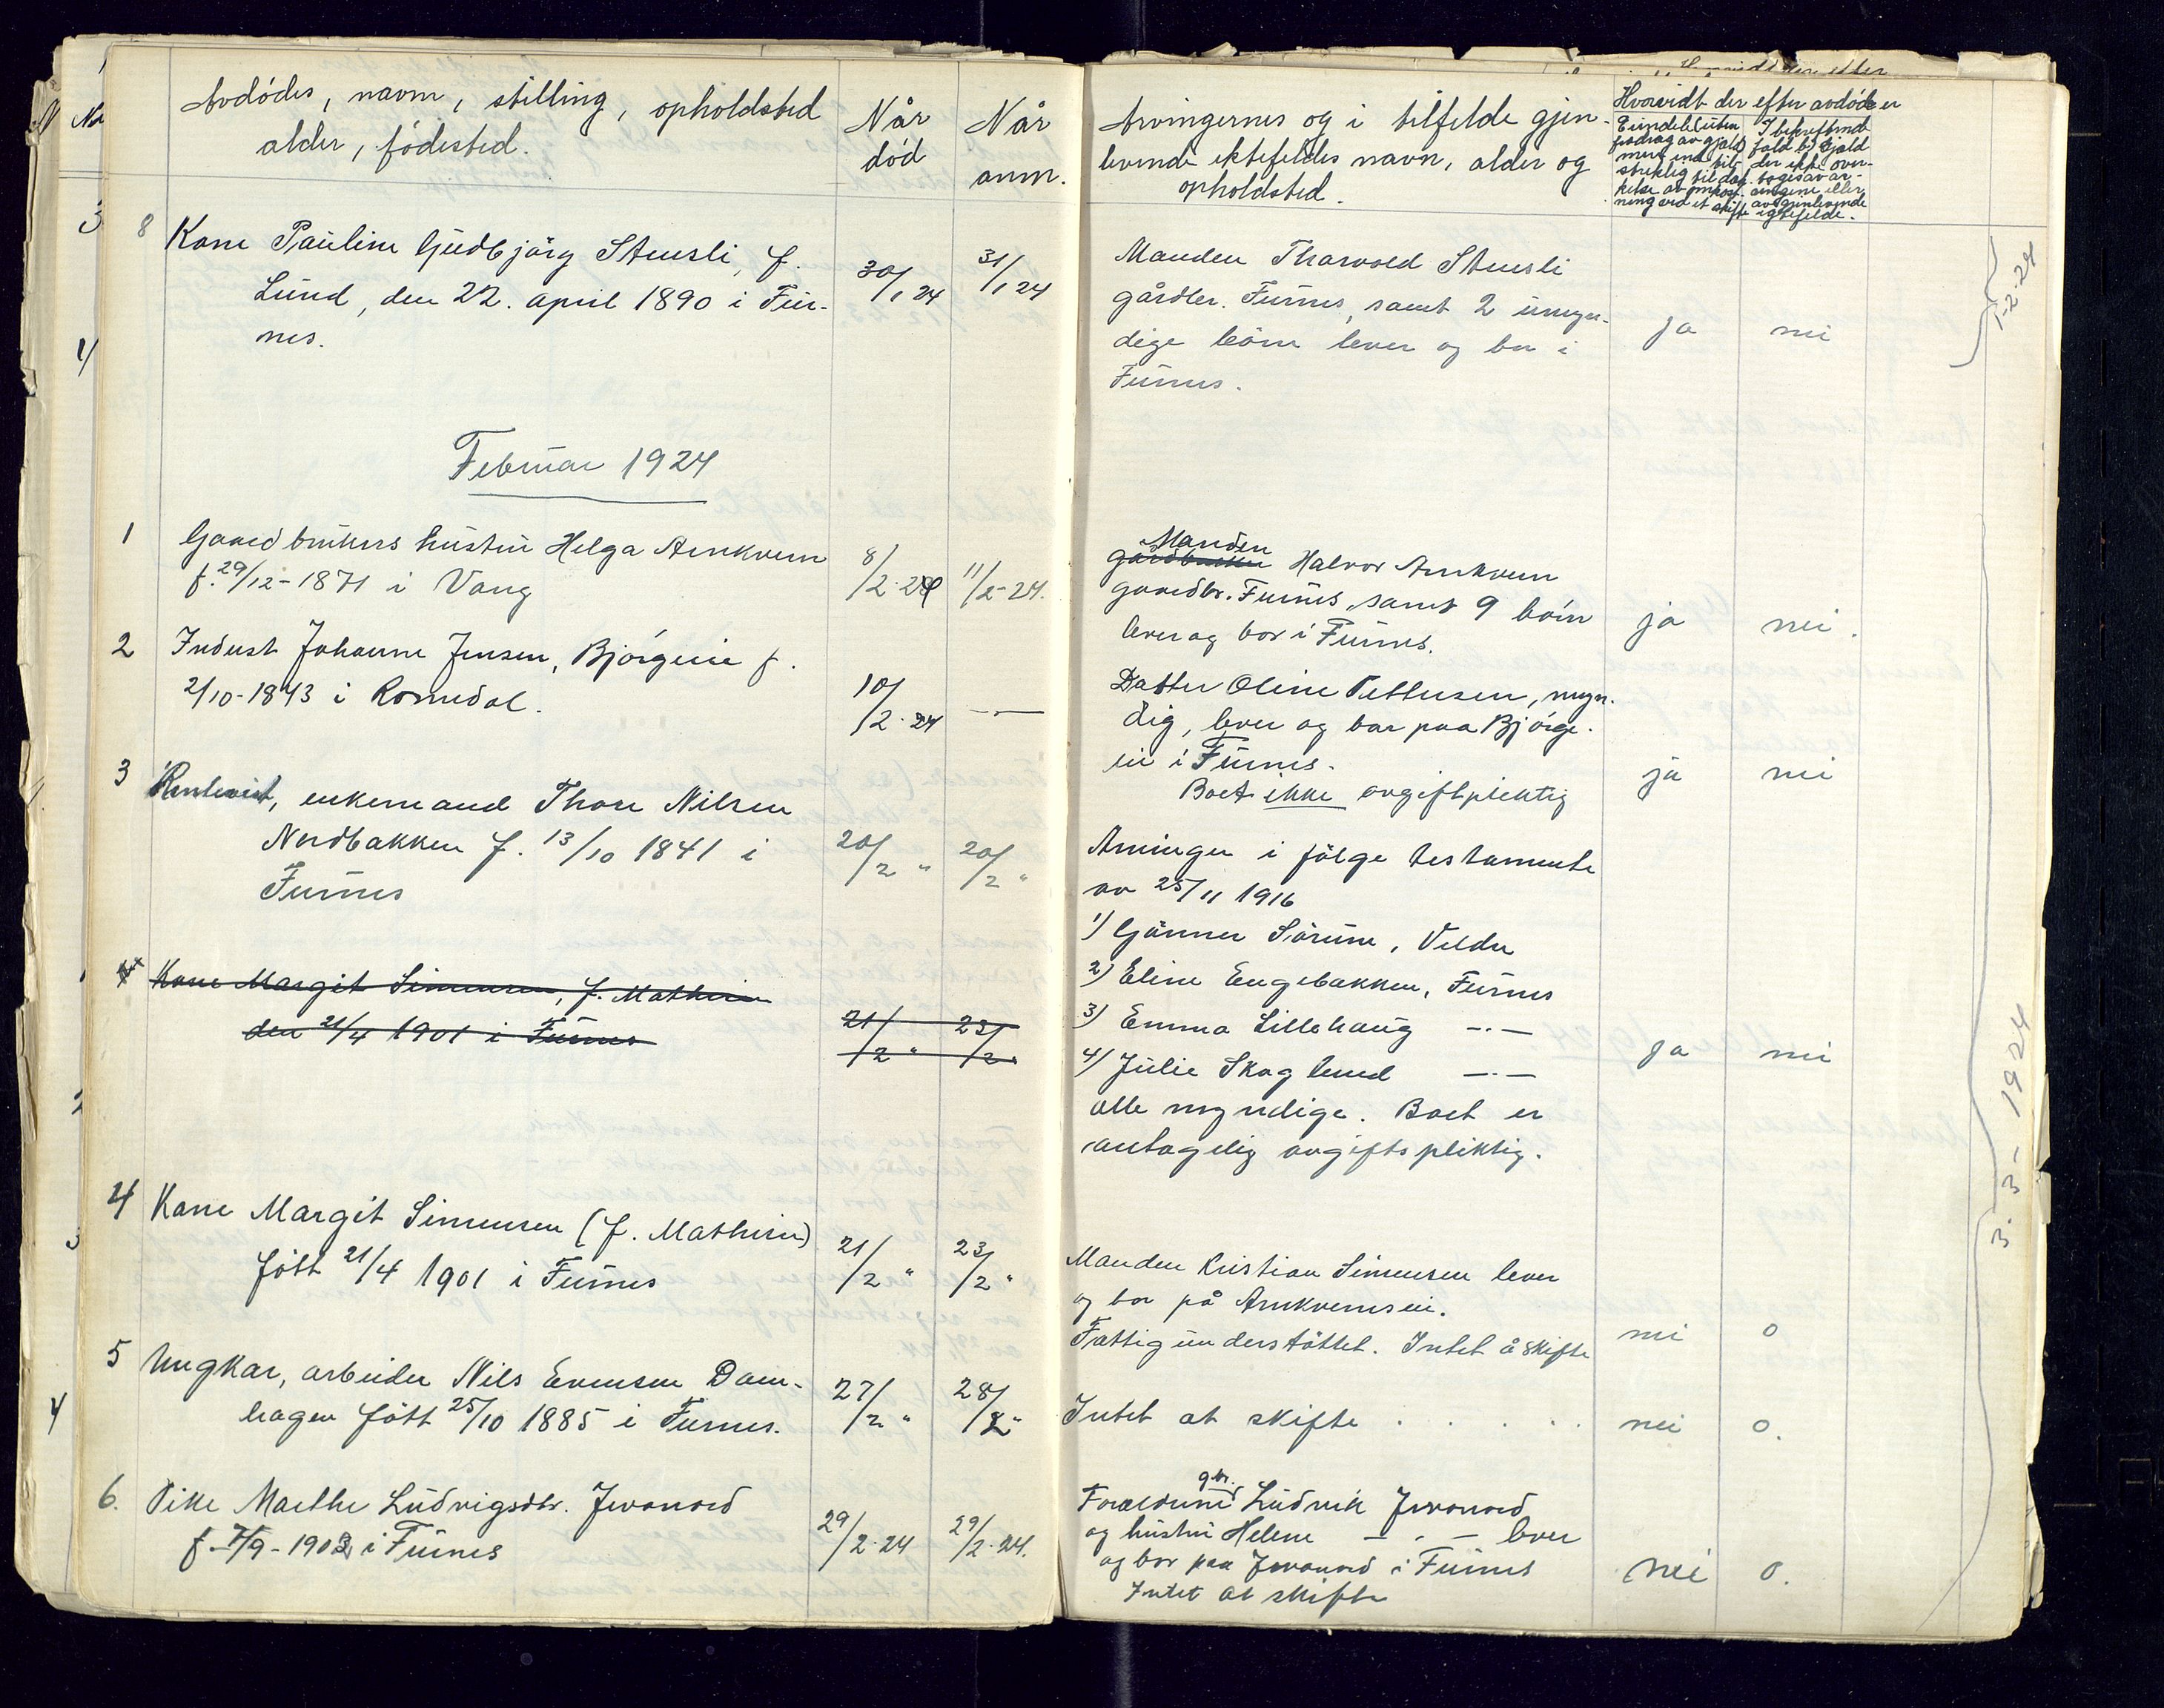 Avdødes, navn, stilling, opholdsted
alder, fødested.
Når
død
Når
anm.
Arvingernes og i tilfelde gjen-
levende ektefeldes navn, alder og
opholdsted.
Hvorvidt der efter avdøde er
8 Kone Pauline Gudbjørg Stensli, f.
Lund, den 22. april 1890 i Fur-
nes.
30/1 24
31/1 24
Manden Thorvald Stensli
gårdbr. Furnes, samt 2 umyn-
dige börn lever og bor i
Furnes.
ja
nei
1-2-24
Februar 1924
1 Gaardbrukers hustru Helga Arnkvern
f. 29/12-1871 i Vang
8/2-24
11/2-24.
Manden
gardbruker Halvor Arnkvern
gaardbr. Furnes, samt 9 børn
lever og bor i Furnes.
ja
nei.
2 Indust Johanne Jensen, Bjørgeie f.
2/10-1843 i Romedal.
10/2-24
-"-
Datter Oline Pettersen, myn-
dig, lever og bor paa Bjørge-
eie i Furnes.
Boet ikke avgiftpliktig
ja
nei
3 enkemand Thore Nilsen
Nordbakken f. 13/10 1841 i
Furnes
20/2 "
20/2 "
Arvinger i følge testamente
av 25/11 1916
1) Gunner Sörum, Veldre
2) Eline Engebakken, Furnes
3) Emma Lillehaug -"-
4) Julie Skoglund -"-
alle myndige. Boet er
antagelig avgiftspliktig.
ja
nei
4 Kone Margit Simensen, f. Mathisen
den 21/4 1901 i Furnes
21/2 "
23/2 "
4 Kone Margit Simensen (f. Mathisen)
født 21/4 1901 i Furnes
21/2 "
23/2 "
Manden Kristian Simensen lever
og bor på Arnkvernseie.
Fattigunderstöttet. Intet å skifte
nei
0
5 Ungkar, arbeider Nils Evensen Dam-
hagen født 25/10 1885 i Furnes.
27/2 "
28/2 "
Intet at skifte . . . . .
nei
0.
6. Pike Marthe Ludvigsdtr. Jevanord
f. 7/9-1903 i Furnes
29/2-24
29/2-24.
gbr.
Forældrene Ludvik Jevanord
og hustru Helene - " - lever
og bor paa Jevanord i Furnes
Intet at skifte
nei
0.
3.3-1924